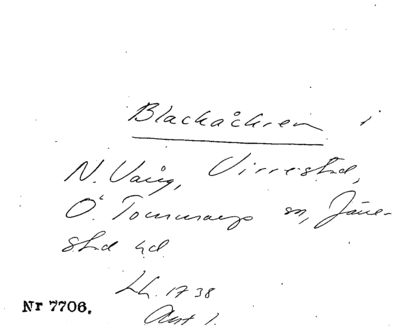 Blackåckren i
N. Vång, Virrestad,
Ö. Tommarps sn, Järre-
stad hd
Lh. 1738
Akt 1.
Nr 7706.